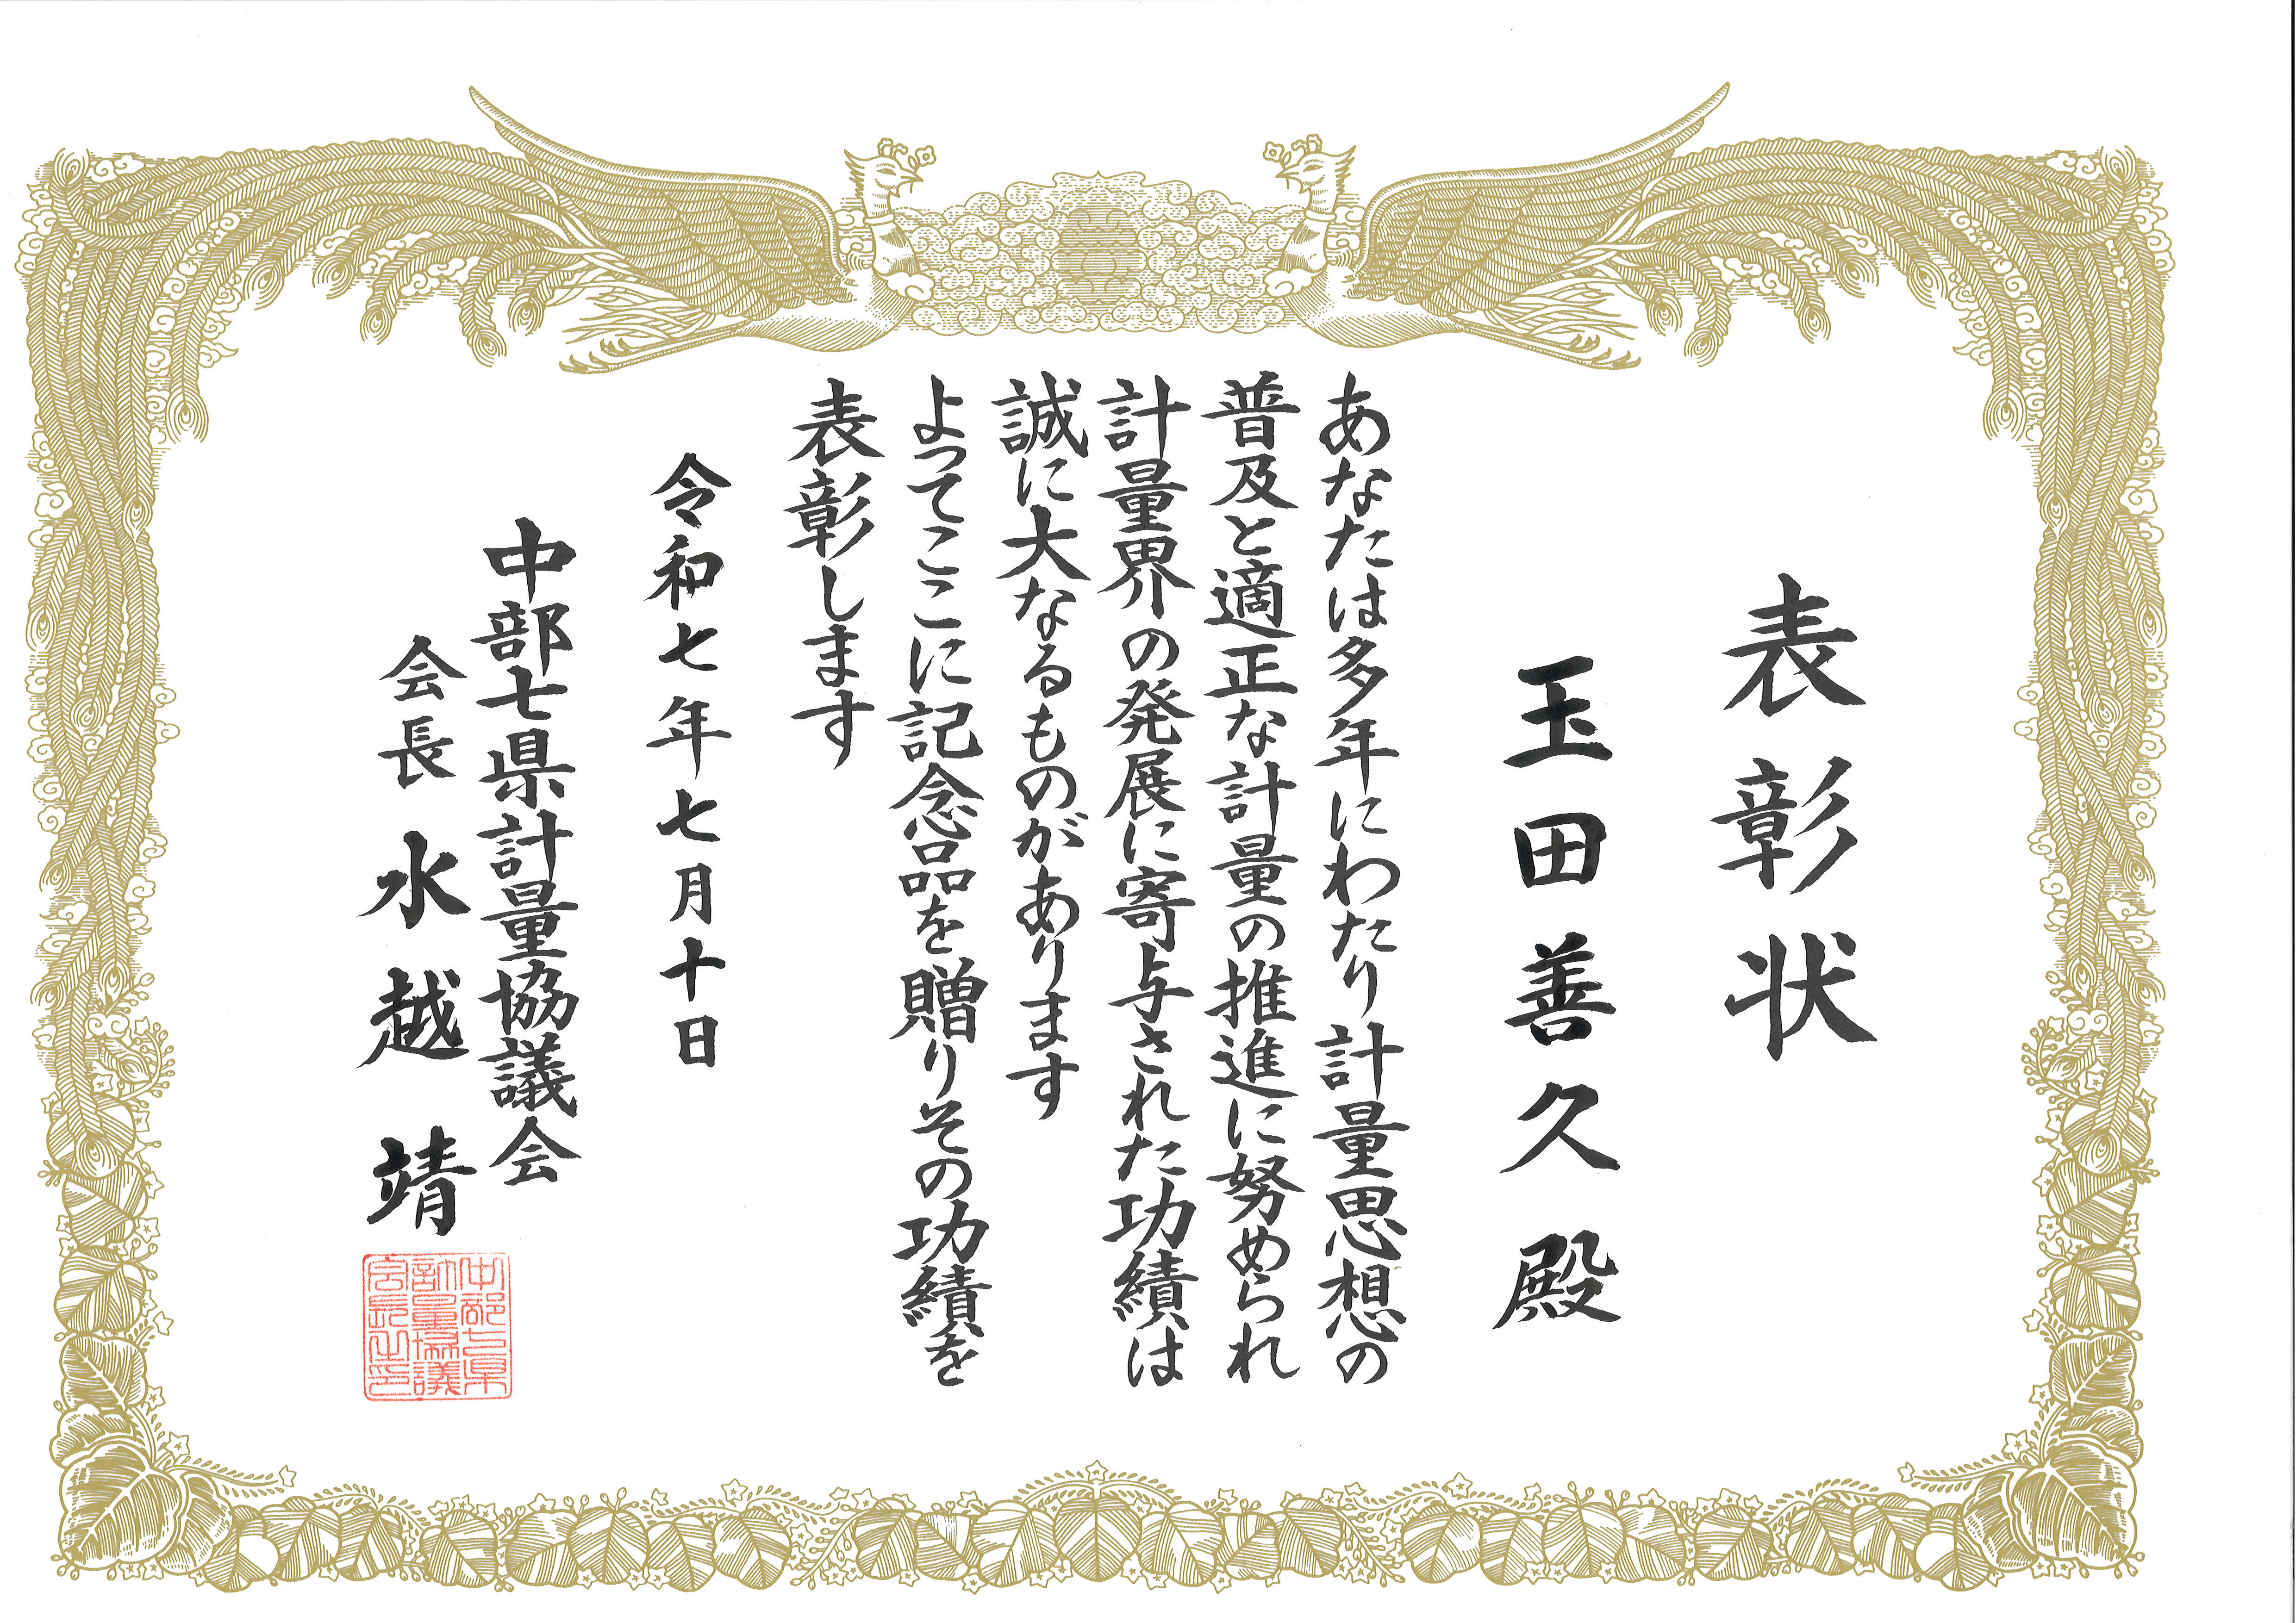 表彰状
玉田善久殿
あなたは多年にわたり計量思想の
普及と適正な計量の推進に努められ
計量界の発展に寄与された功績は
誠に大なるものがあります
よってここに記念品を贈りその功績を
表彰します
令和七年七月十日
中部七県計量協議会
会長 水越靖
中部七県
計量協議
会長之印